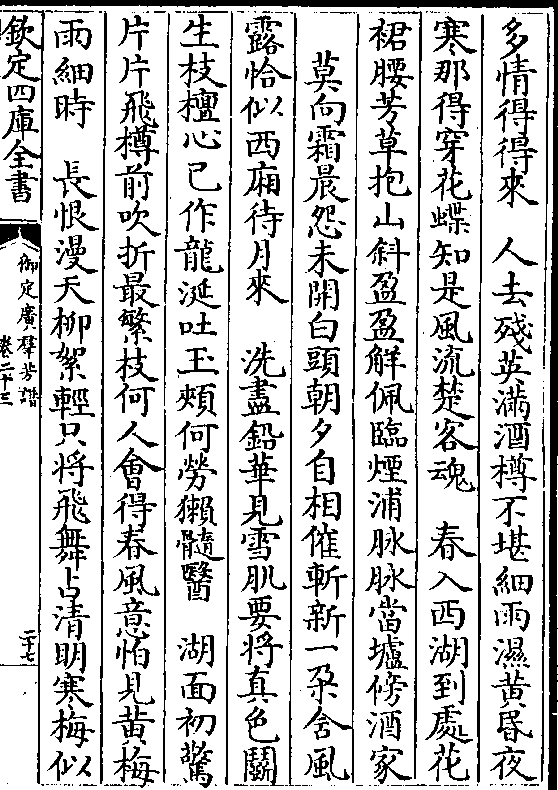 多情得得來　人去殘英滿酒樽不堪細雨濕黃昏夜
寒那得穿花蝶知是風流楚客魂　春入西湖到處花
裙腰芳草抱山斜盈盈解佩臨煙浦脉脉當壚傍酒家
莫向霜晨怨未開白頭朝夕自相催斬新一朶含風
露恰似西廂待月來　洗盡鉛華見雪肌要將真色鬭
生枝檀心已作龍涎吐玉頰何勞獺髓醫　湖面初驚
片片飛樽前吹折最繁枝何人會得春風意怕見黃梅
雨細時　長恨漫天柳絮輕只將飛舞占清明寒梅似
欽定四庫全書
御定廣羣芳譜
卷二十三
二十七